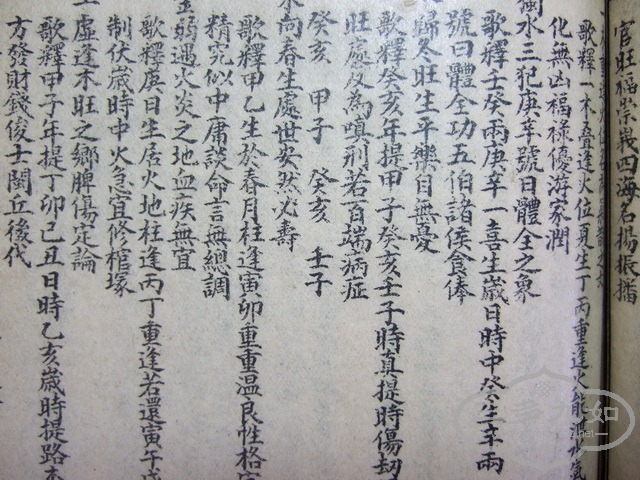 官旺福崇義四海名揚振播
歌釋一木叠逢火位夏生丁丙重逢火能濟
化無凶福祿優游家潤
水三犯庚辛號日體全之象
歌釋壬癸兩庚辛一喜生歲日時中癸生辛兩
號日體全功五伯諸侯食俸
歸冬旺生平樂自無憂
歌釋癸亥年提甲子癸亥壬子時真提時傷劫
旺處反為嗔刑若百端病症
癸亥 甲子 癸亥 壬子
水向春生處世安然必壽
歌釋甲乙生於春月柱逢寅卯重重溫良性格
精究似中庸談命言無總調
弱遇火炎之地血疾無宜
歌釋庚日生居火地柱逢丙丁重逢若還寅午戌
制伏歲時中火急宜修棺塚
土虛逢木旺之鄉脾傷定論
歌釋甲子年提丁卯己丑日時乙亥歲時提路
方發財錢俊士閩丘後代